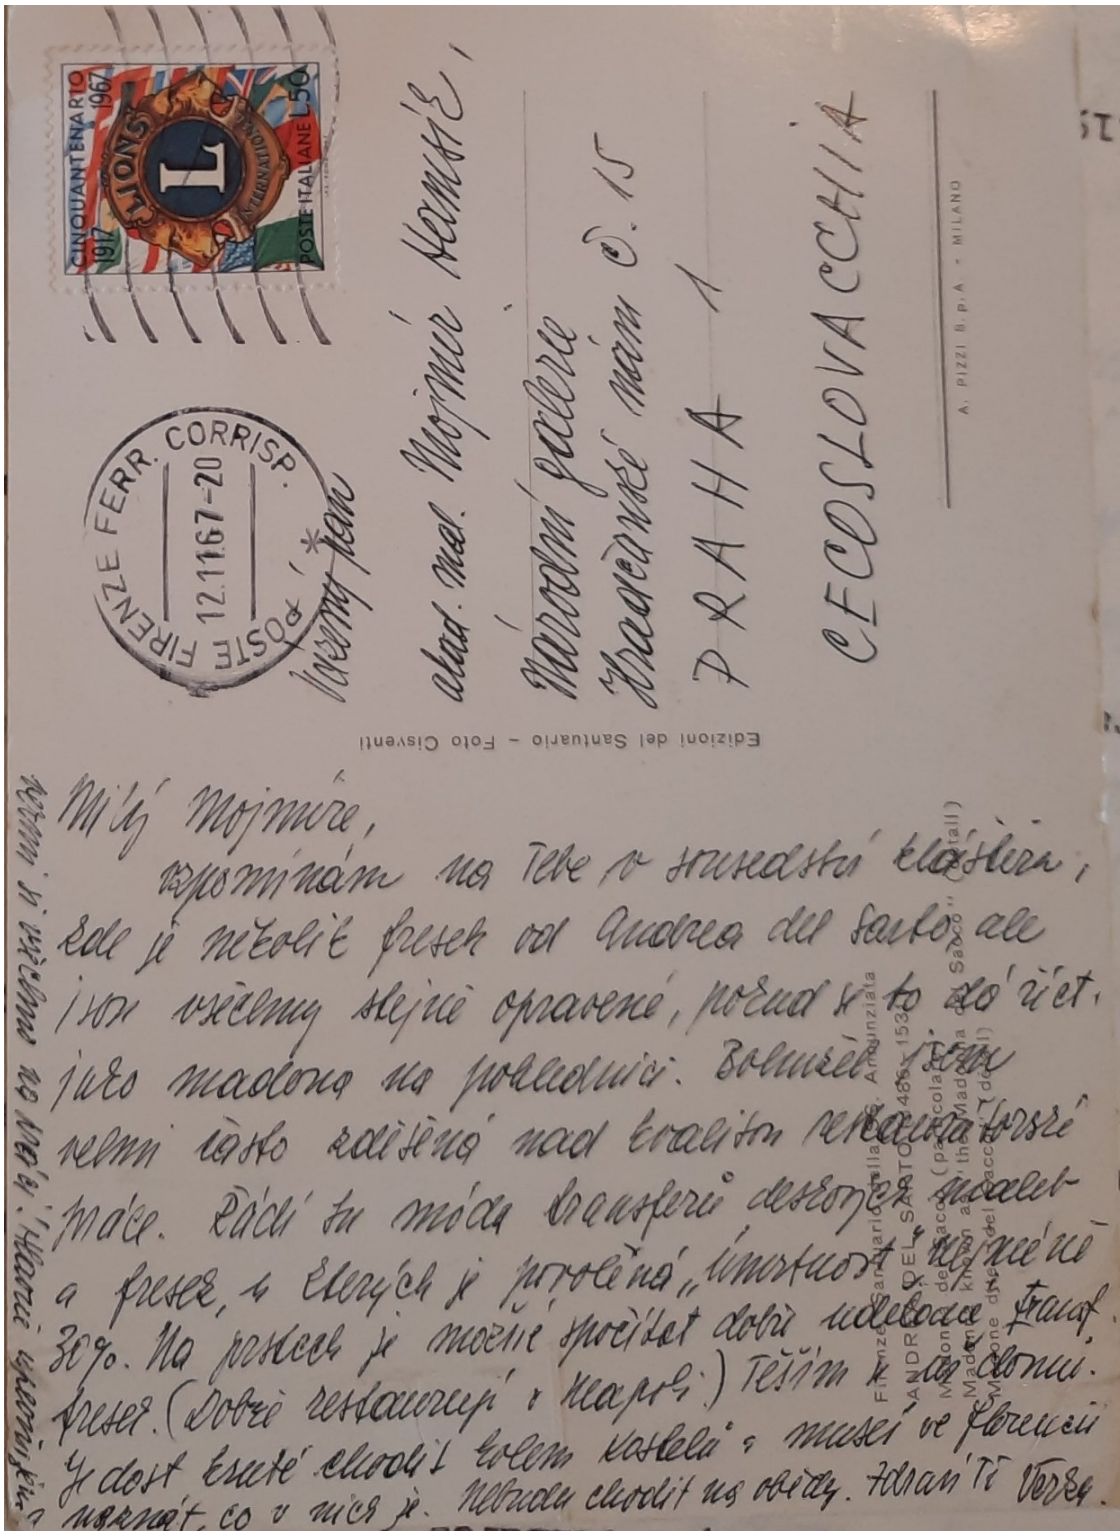 CINQUANTENARIO
1917 1967
LIONS INTERNATIONAL
L
POSTE ITALIANE L.50
POSTE FIRENZE FERR. CORRISP.
12.11.67-20
Vážený pan
akad. mal. Mojmír Hamsík,
Národní galerie
Hradčanské nám č. 15
PRAHA 1
CECOSLOVACCHIA
A. PIZZI S.p.A. - MILANO
Edizioni del Santuario - Foto Cisventi
Milý Mojmíre,
vzpomínám na Tebe v sousedství kláštera,
kde je několik fresek od Andrea del Sarto, ale
jsou všechny stejně opravené, pokud se to dá říct,
jako madona na pohlednici. Bohužel jsem
velmi často zděšená nad kvalitou restaurátorské
práce. Řádí tu móda transferů deskových maleb
a fresek, u kterých je povolená „úmrtnost" nejméně
30%. Na prstech je možné spočítat dobře udělané transf.
fresek. (Dobře restaurují v Neapoli.) Těším se už domů.
Je dost kruté chodit kolem kostelů a museí ve Florencii
a neznát, co v nich je. Nebudu chodit na obědy. Zdraví Tě Věrka.
Firenze Santuario della SS. Annunziata
ANDREA DEL SARTO (1486-153
Madonna del Sacco (particolare)
Madonna known as "the Madonna del Sacco" (detail)
Madone dite del Sacco (détail)